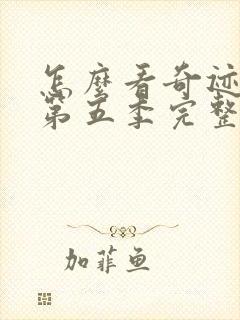 怎麽看奇迹
第五季完整
加菲鱼